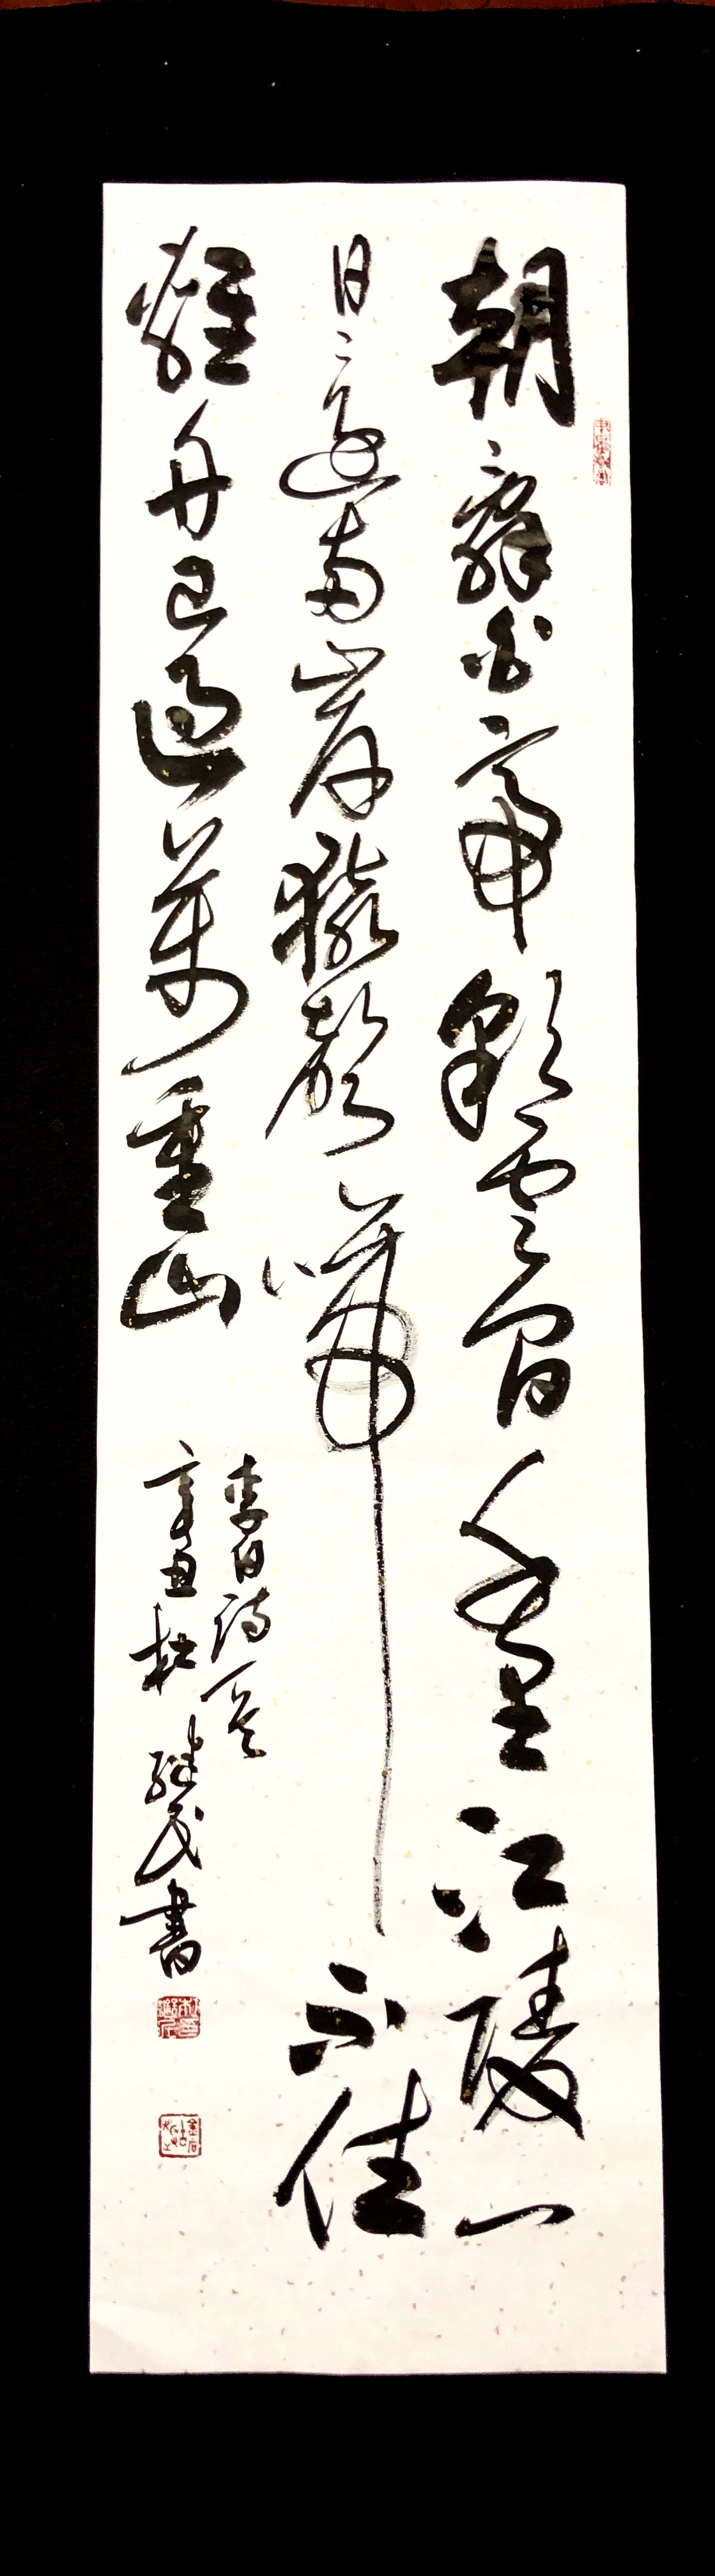 朝辭白帝彩雲間千里江陵一
日還兩岸猿聲啼不住
輕舟已過萬重山
李白詩一首
辛丑杜继民書